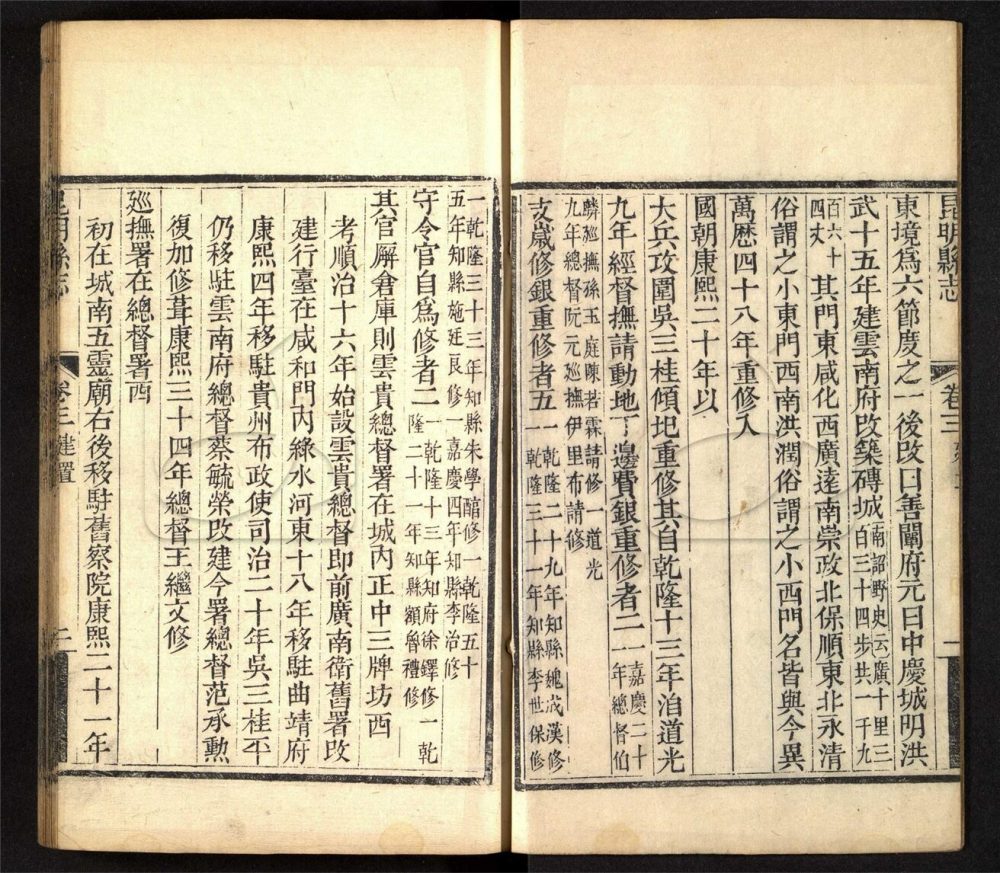 昆明縣志
卷三
一
東境爲六節度之一後改曰善闡府元曰中慶城明洪
武十五年建雲南府改築磚城南詔野史云廣十里三
百三十四步共一千九
百六十
四丈
其門東咸化西廣遠南崇政北保順東北永清
俗謂之小東門西南洪潤俗謂之小西門名皆與今異
萬歷四十八年重修入
國朝康熙二十年以
大兵攻圍吳三桂傾圯重修其自乾隆十三年洎道光
九年經督撫請動地丁邊費銀重修者二一嘉慶二十
一年總督伯
麟廵撫孫玉庭陳若霖請修一道光
九年總督阮元廵撫伊里布請修
支歲修銀重修者五一乾隆二十九年知縣魏成漢修
一乾隆三十一年知縣李世保修
一乾隆三十三年知縣朱學醇修一乾隆五十
五年知縣施廷良修一嘉慶四年知縣李治修
守令官自爲修者二一乾隆十三年知府徐鐸修一乾
隆二十一年知縣額魯禮修
其官廨倉庫則雲貴總督署在城內正中三牌坊西
考順治十六年始設雲貴總督即前廣南衛舊署改
建行臺在咸和門內綠水河東十八年移駐曲靖府
康熙四年移駐貴州布政使司治二十年吳三桂平
仍移駐雲南府總督蔡毓榮改建今署總督范承勲
復加修葺康熙三十四年總督王繼文修
廵撫署在總督署西
初在城南五靈廟右後移駐舊察院康熙二十一年
昆明縣志
卷三 建置
二